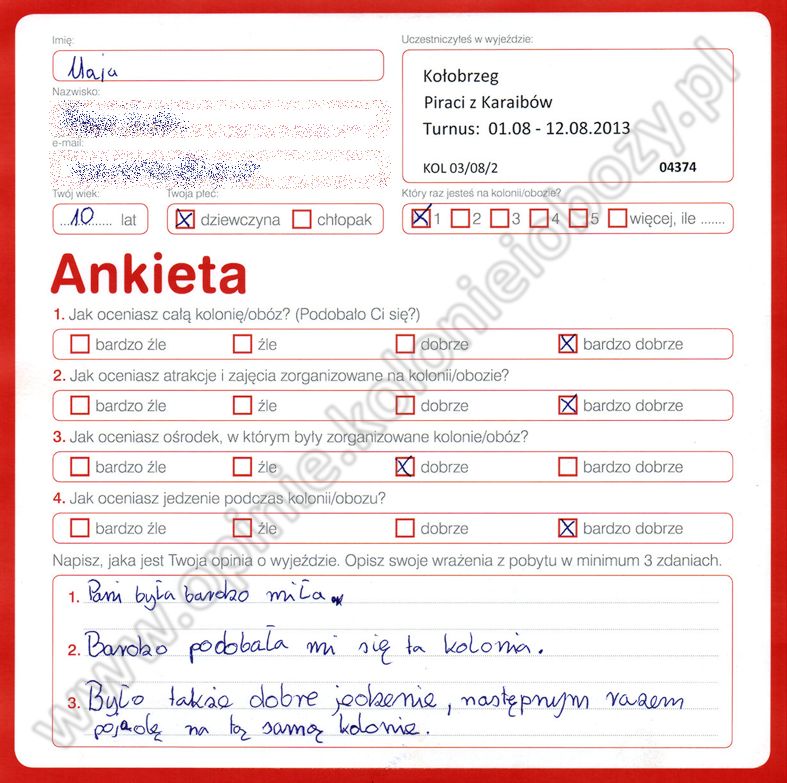 Imię:
Uczestniczyłeś w wyjeździe:
Maja
Kołobrzeg
Nazwisko:
Piraci z Karaibów
Turnus: 01.08 - 12.08.2013
e-mail:
KOL 03/08/2 04374
Twój wiek:
Twoja płeć:
Który raz jesteś na kolonii/obozie?
10 lat
dziewczyna chłopak
1 2 3 4 5 więcej, ile .......
Ankieta
1. Jak oceniasz całą kolonię/obóz? (Podobało Ci się?)
bardzo źle źle dobrze bardzo dobrze
2. Jak oceniasz atrakcje i zajęcia zorganizowane na kolonii/obozie?
bardzo źle źle dobrze bardzo dobrze
3. Jak oceniasz ośrodek, w którym były zorganizowane kolonie/obóz?
bardzo źle źle dobrze bardzo dobrze
4. Jak oceniasz jedzenie podczas kolonii/obozu?
bardzo źle źle dobrze bardzo dobrze
Napisz, jaka jest Twoja opinia o wyjeździe. Opisz swoje wrażenia z pobytu w minimum 3 zdaniach.
1. Pani była bardzo miła.
2. Bardzo podobała mi się ta kolonia.
3. Było także dobre jedzenie, następnym razem
pojadę na tą samą kolonie.
www.opinie.kolonieiobozy.pl